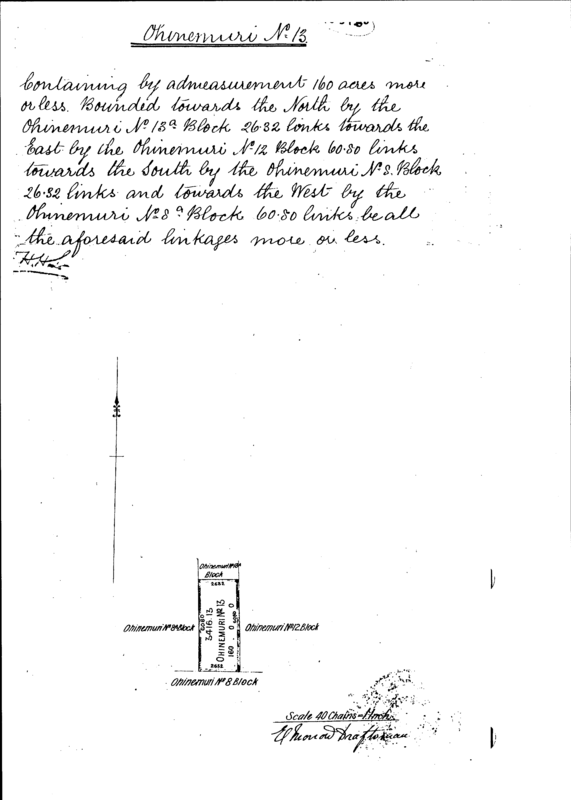 Ohinemuri No. 13.
Containing by admeasurement 160 acres more
or less. Bounded towards the North by the
Ohinemuri No. 13a Block 26.32 links towards the
East by the Ohinemuri No. 12 Block 60.80 links
towards the South by the Ohinemuri No. 8. Block
26.32 links and towards the West by the
Ohinemuri No. 8a Block 60.80 links, be all
the aforesaid linkages more or less.
Ohinemuri No
Block
2632
Ohinemuri No 8a Block
6080
3416.13
OHINEMURI No 13
160 . 0 . 0
6080
Ohinemuri No 12 Block
2632
Ohinemuri No 8 Block
Scale 40 Chains = 1 Inch
Draftsman